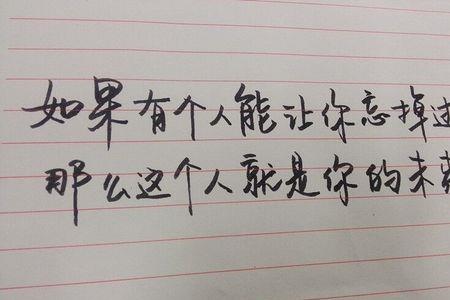 如果有个人能让你忘掉过
那么这个人就是你的未来